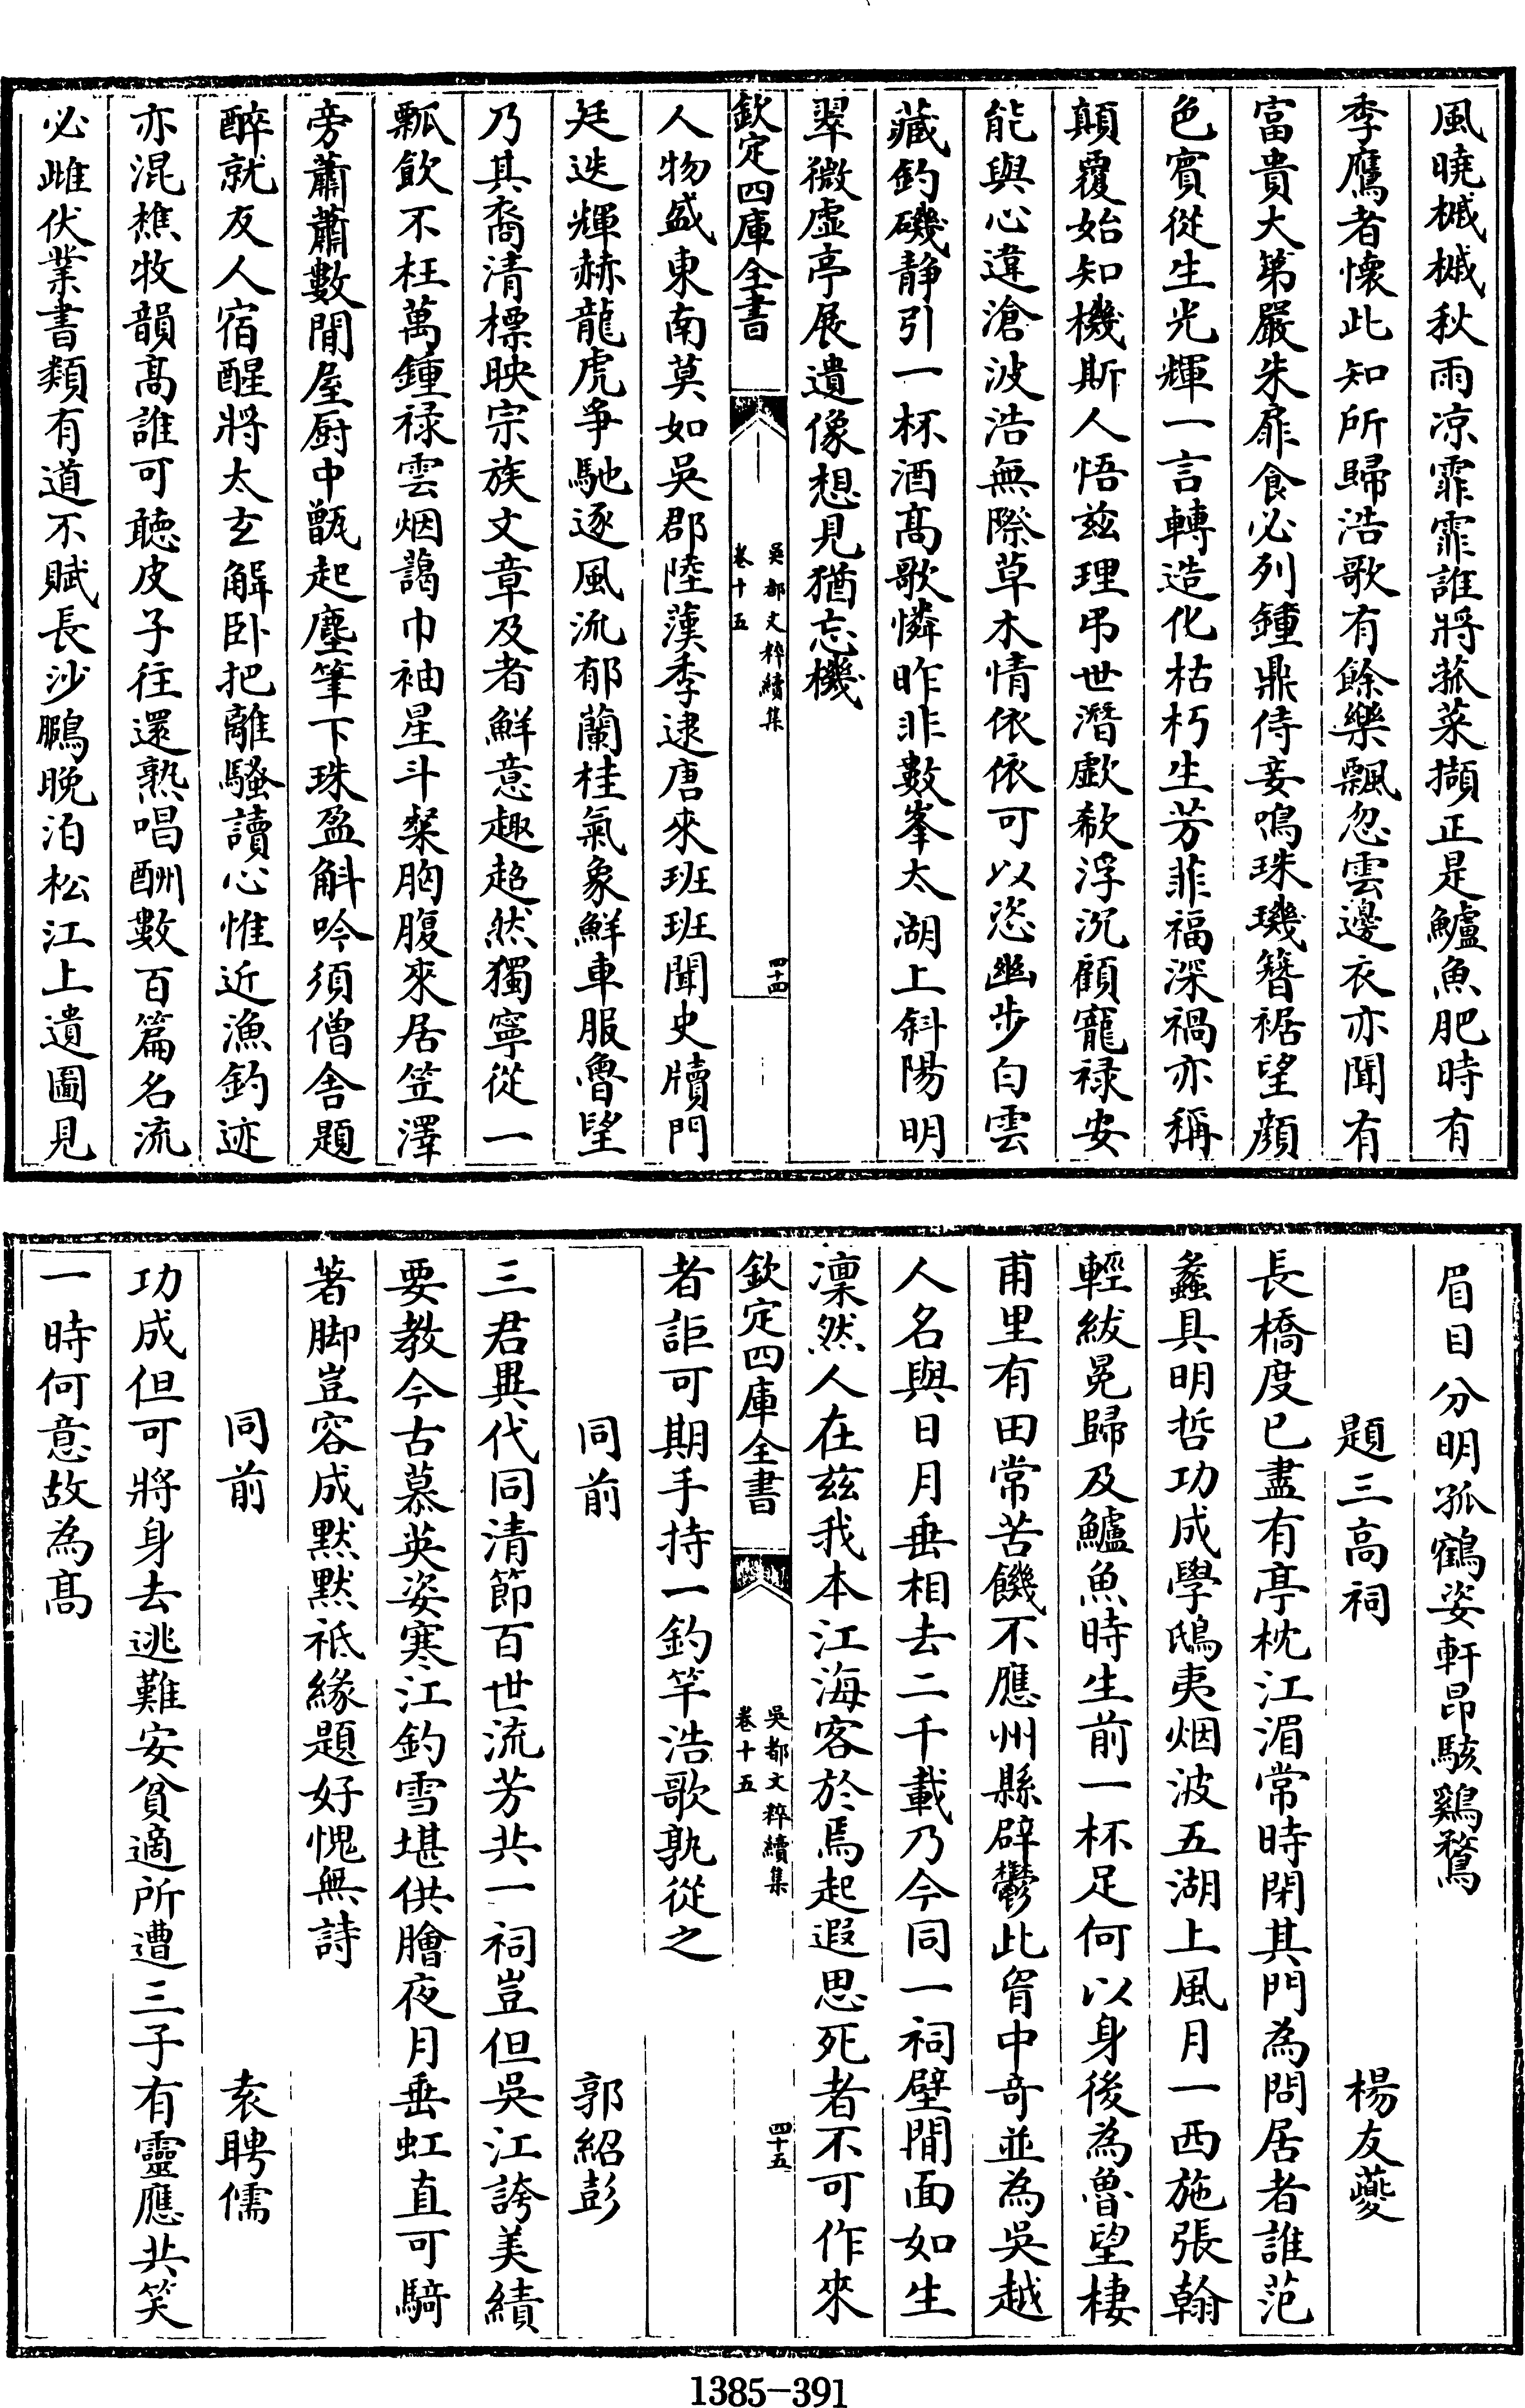 風曉槭槭秋雨凉霏霏誰將菰菜擷正是鱸魚肥時有
季鷹者懷此知所歸浩歌有餘樂飄忽雲邊衣亦聞有
富貴大第嚴朱扉食必列鍾鼎侍妾鳴珠璣簪裾望顔
色賓從生光輝一言轉造化枯朽生芳菲福深禍亦稱
顛覆始知機斯人悟兹理弔世潛歔欷浮沉顧寵禄安
能與心違滄波浩無際草木情依依可以恣幽步白雲
藏釣磯靜引一杯酒髙歌憐昨非數峯太湖上斜陽明
翠微虛亭展遺像想見猶忘機
欽定四庫全書
吳都文粹續集
卷十五
四十四
人物盛東南莫如吳郡陸漢季逮唐來班班聞史牘門
廷迭輝赫龍虎爭馳逐風流郁蘭桂氣象鮮車服魯望
乃其裔清標映宗族文章及者鮮意趣超然獨寧從一
瓢飲不枉萬鍾禄雲烟藹巾袖星斗粲胸腹來居笠澤
旁蕭蕭數間屋厨中甑起塵筆下珠盈斛吟須僧舍題
醉就友人宿醒將太玄解卧把離騷讀心惟近漁釣迹
亦混樵牧韻髙誰可聽皮子往還熟唱酬數百篇名流
必雌伏業書類有道不賦長沙鵩晚泊松江上遺圖見
眉目分明孤鶴姿軒昂駭鷄鶩
題三高祠
楊友夔
長橋度已盡有亭枕江湄常時閉其門為問居者誰范
蠡具明哲功成學鴟夷烟波五湖上風月一西施張翰
輕紱冕歸及鱸魚時生前一杯足何以身後為魯望棲
甫里有田常苦饑不應州縣辟鬱此胷中竒並為吳越
人名與日月垂相去二千載乃今同一祠壁間面如生
凜然人在兹我本江海客於焉起遐思死者不可作來
欽定四庫全書
吳都文粹續集
卷十五
四十五
者詎可期手持一釣竿浩歌孰從之
同前
郭紹彭
三君異代同清節百世流芳共一祠豈但吳江誇美績
要教今古慕英姿寒江釣雪堪供膾夜月垂虹直可騎
著脚豈容成黙黙祗緣題好愧無詩
同前
袁聘儒
功成但可將身去逃難安貧適所遭三子有靈應共笑
一時何意故為髙
1385-391